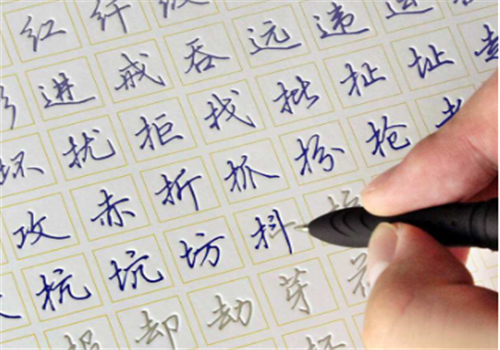 红 纤
进 戒 吞 远 违 运
坏 扰 拒 找 批 扯 址 走
攻 赤 折 抓 扮 抢
抗 坑 坊 抖
报 却 劫 芽 花